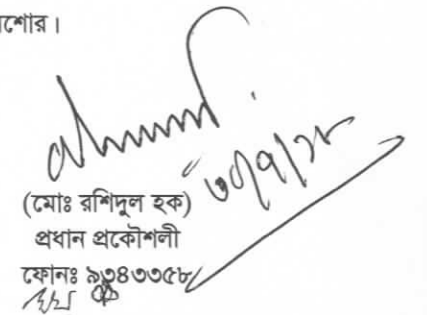 শোর।
৩০/৭/১৮
(মোঃ রশিদুল হক)
প্রধান প্রকৌশলী
ফোনঃ ৯৩৪৩৩৫৮